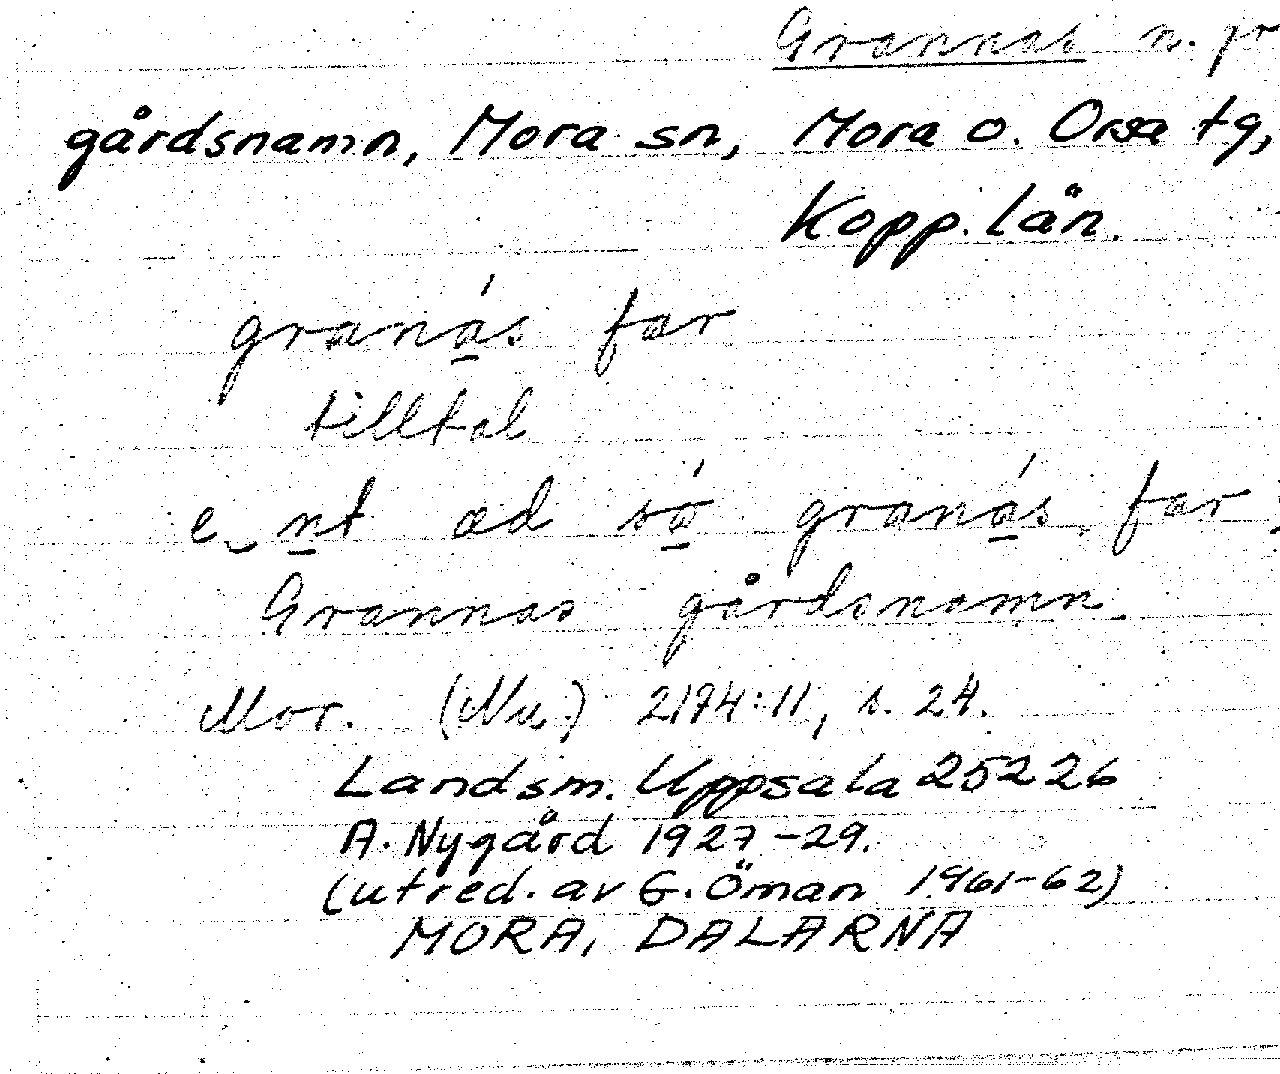 Grannas n. pr
gårdsnamn, Mora sn, Mora o. Orsa tg,
Kopp. län.
granás far
tilltal
e nt ad só granás far
Grannas gårdsnamn
Mor. (Nu.) 2174:11, s. 24.
Landsm. Uppsala 25226
A. Nygård 1927-29.
(utred. av G. Öman 1961-62)
MORA, DALARNA